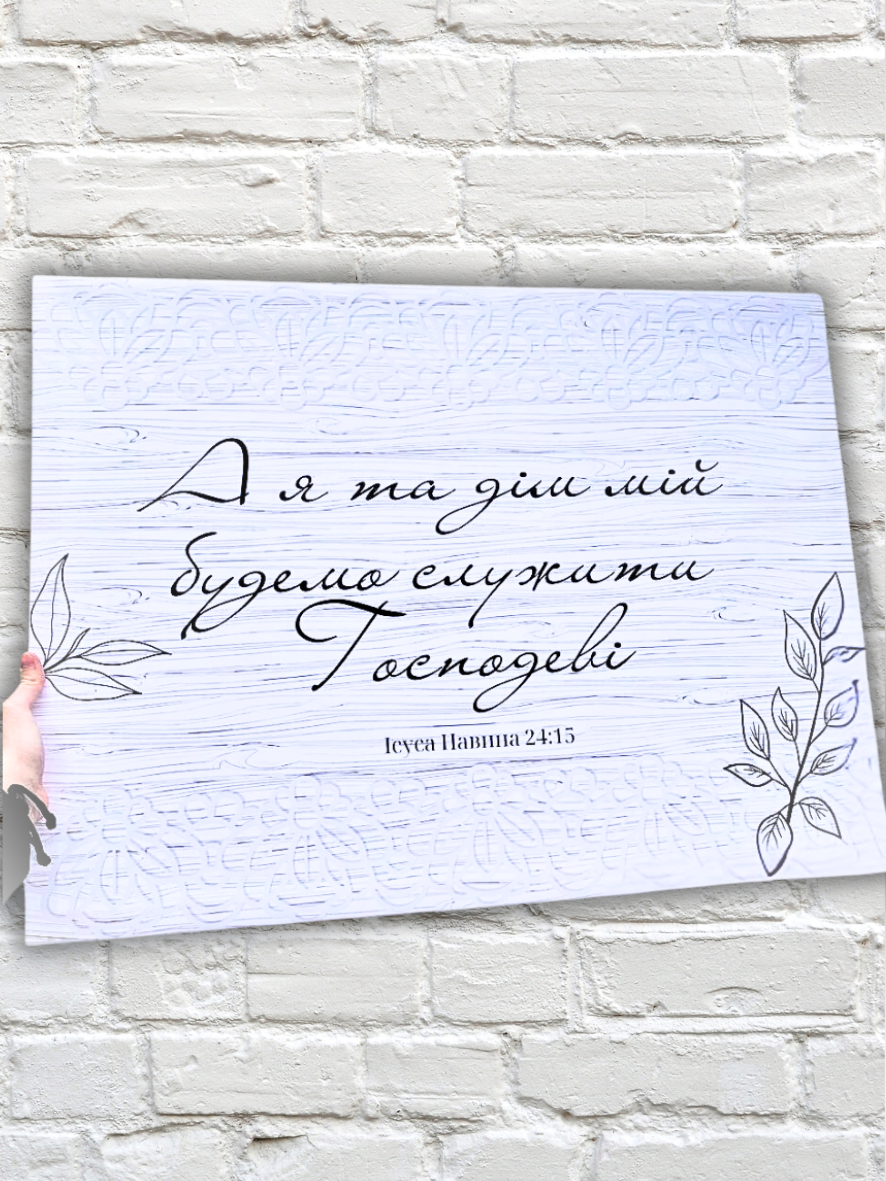 А я та дім мій
будемо служити
Господеві
Ісуса Навина 24:15